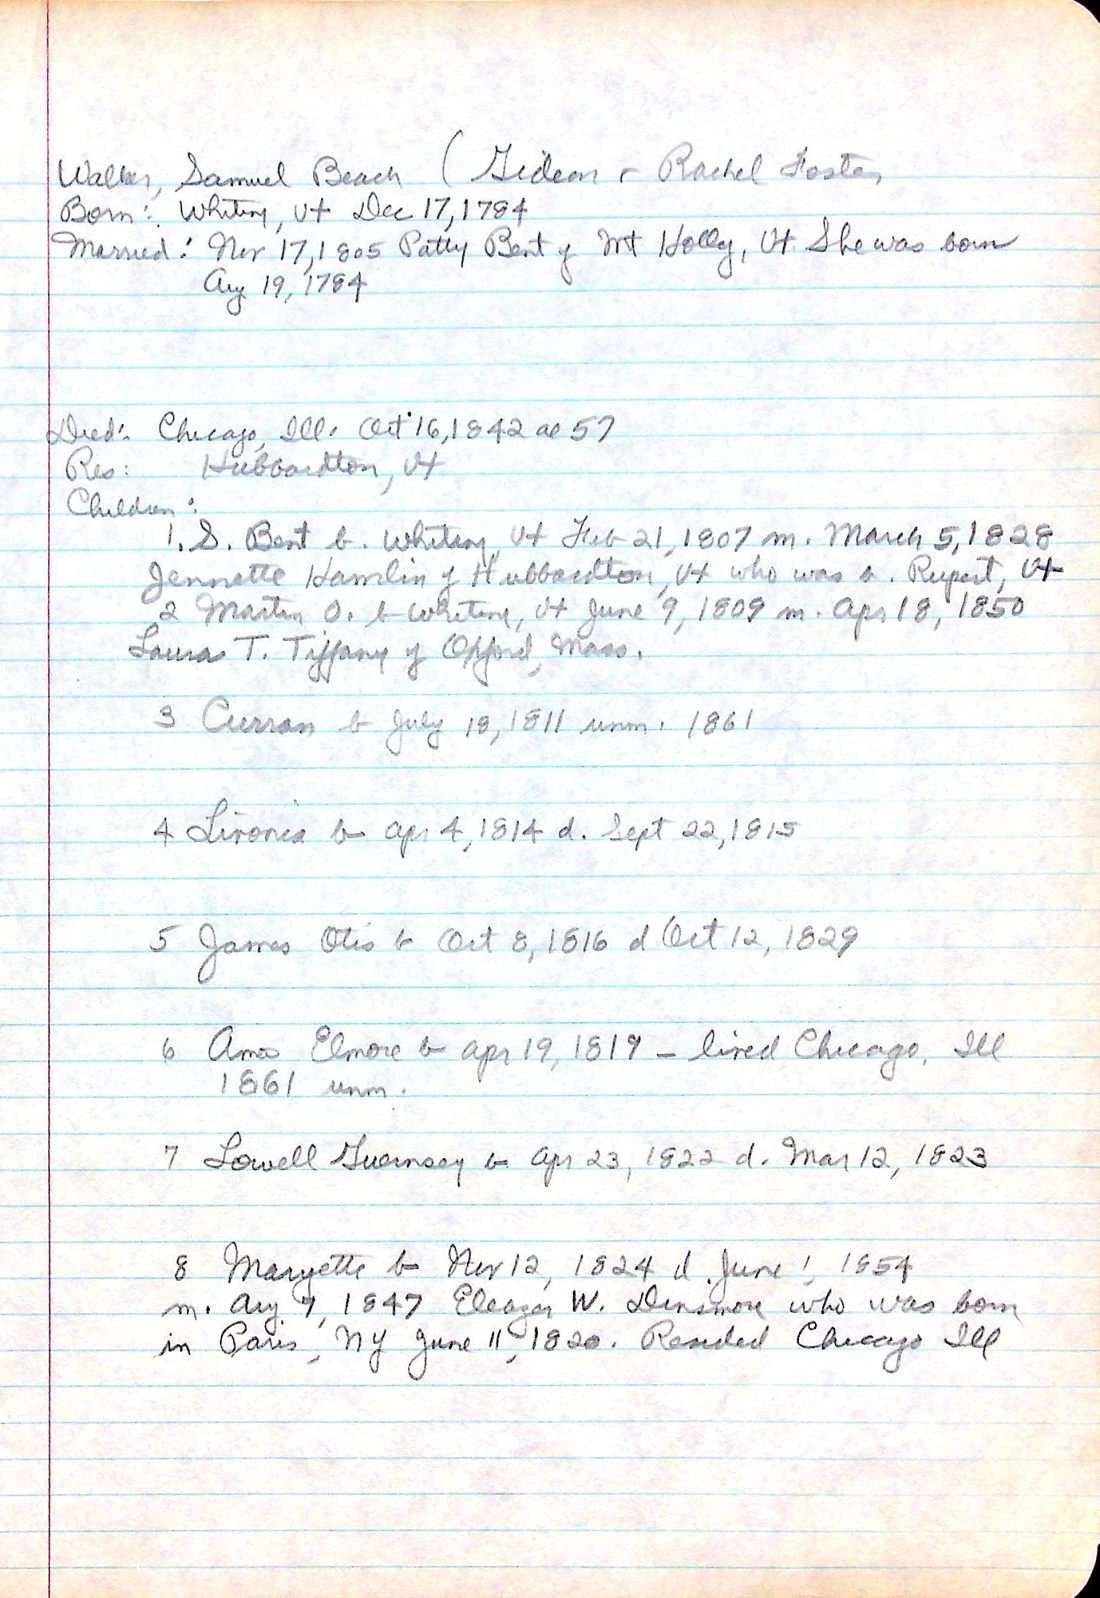 Walker, Samuel Beach (Gideon & Rachel Foster
Born: Whiting, Vt Dec 17, 1784
Married: Nov 17, 1805 Patty Bent of Mt Holly, Vt She was born
Aug 19, 1784
Died: Chicago, Ill. Oct 16, 1842 ae 57
Res: Hubbardton, Vt
Children:
1. S. Bent b. Whiting, Vt Feb 21, 1807 m. March 5, 1828
Jennette Hamlin of Hubbardton, Vt who was b. Rupert, Vt
2 Martin O. b Whiting, Vt June 9, 1809 m. Apr 18, 1850
Laura T. Tiffany of Oxford, Mass.
3 Curran b July 18, 1811 unm. 1861
4 Livonia b Apr 4, 1814 d. Sept 22, 1815
5 James Otis b Oct 8, 1816 d Oct 12, 1829
6 Elmore b Apr 19, 1819 - lived Chicago, Ill
1861 unm.
7 Lowell Guernsey b Apr 23, 1822 d. Mar 12, 1823
8 Maryette b Nov 12, 1824 d. June 1, 1854
m. Aug 7, 1847 Eleazar W. Densmore who was born
in Paris, NY June 11, 1820. Resided Chicago Ill